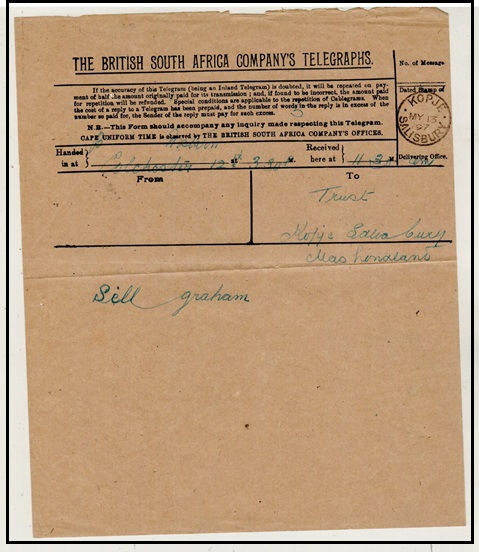 THE BRITISH SOUTH AFRICA COMPANY'S TELEGRAPHS.
No. of Message
If the accuracy of this Telegram (being an Inland Telegram) is doubted, it will be repeated on pay-
ment of half the amount originally paid for its transmission; and, if found to be incorrect, the amount paid
for repetition will be refunded. Special conditions are applicable to the repetition of Cablegrams. When
the cost of a reply to a Telegram has been prepaid, and the number of words in the reply is in excess of the
number so paid for, the Sender of the reply must pay for such excess.
Dated Stamp of
KOPJE
MY 13
97
SALISBURY
N.B.—This Form should accompany any inquiry made respecting this Telegram.
CAPE UNIFORM TIME is observed by THE BRITISH SOUTH AFRICA COMPANY'S OFFICES.
Handed in at
12 at 3.30 M.
Received here at
11.30 M.
Delivering Office.
From
To
Trust
Kopje Salisbury
Mashonaland
Sell graham